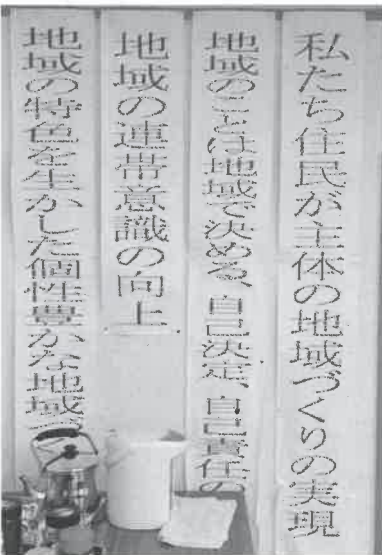 私たち住民が主体の地域づくりの実現
地域のことは地域で決める、自己決定、自己責任の
地域の連帯意識の向上
地域の特色を生かした個性豊かな地域づ